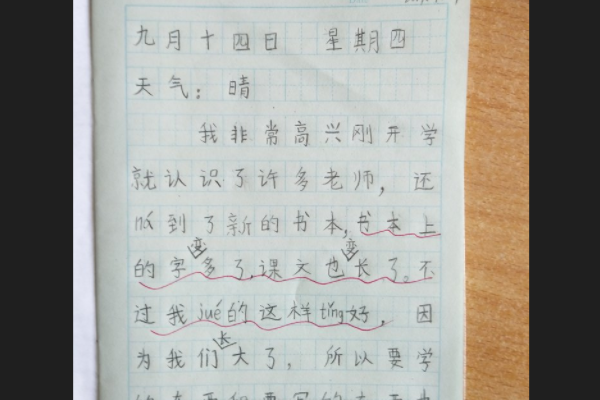 九月十四日 星期四
天气：晴
我非常高兴刚开学
就认识了许多老师，还
到了新的书本，书本上
的字变多了，课文也变长了。不
过我jué的这样tǐng好，因
为我们长大了，所以要学